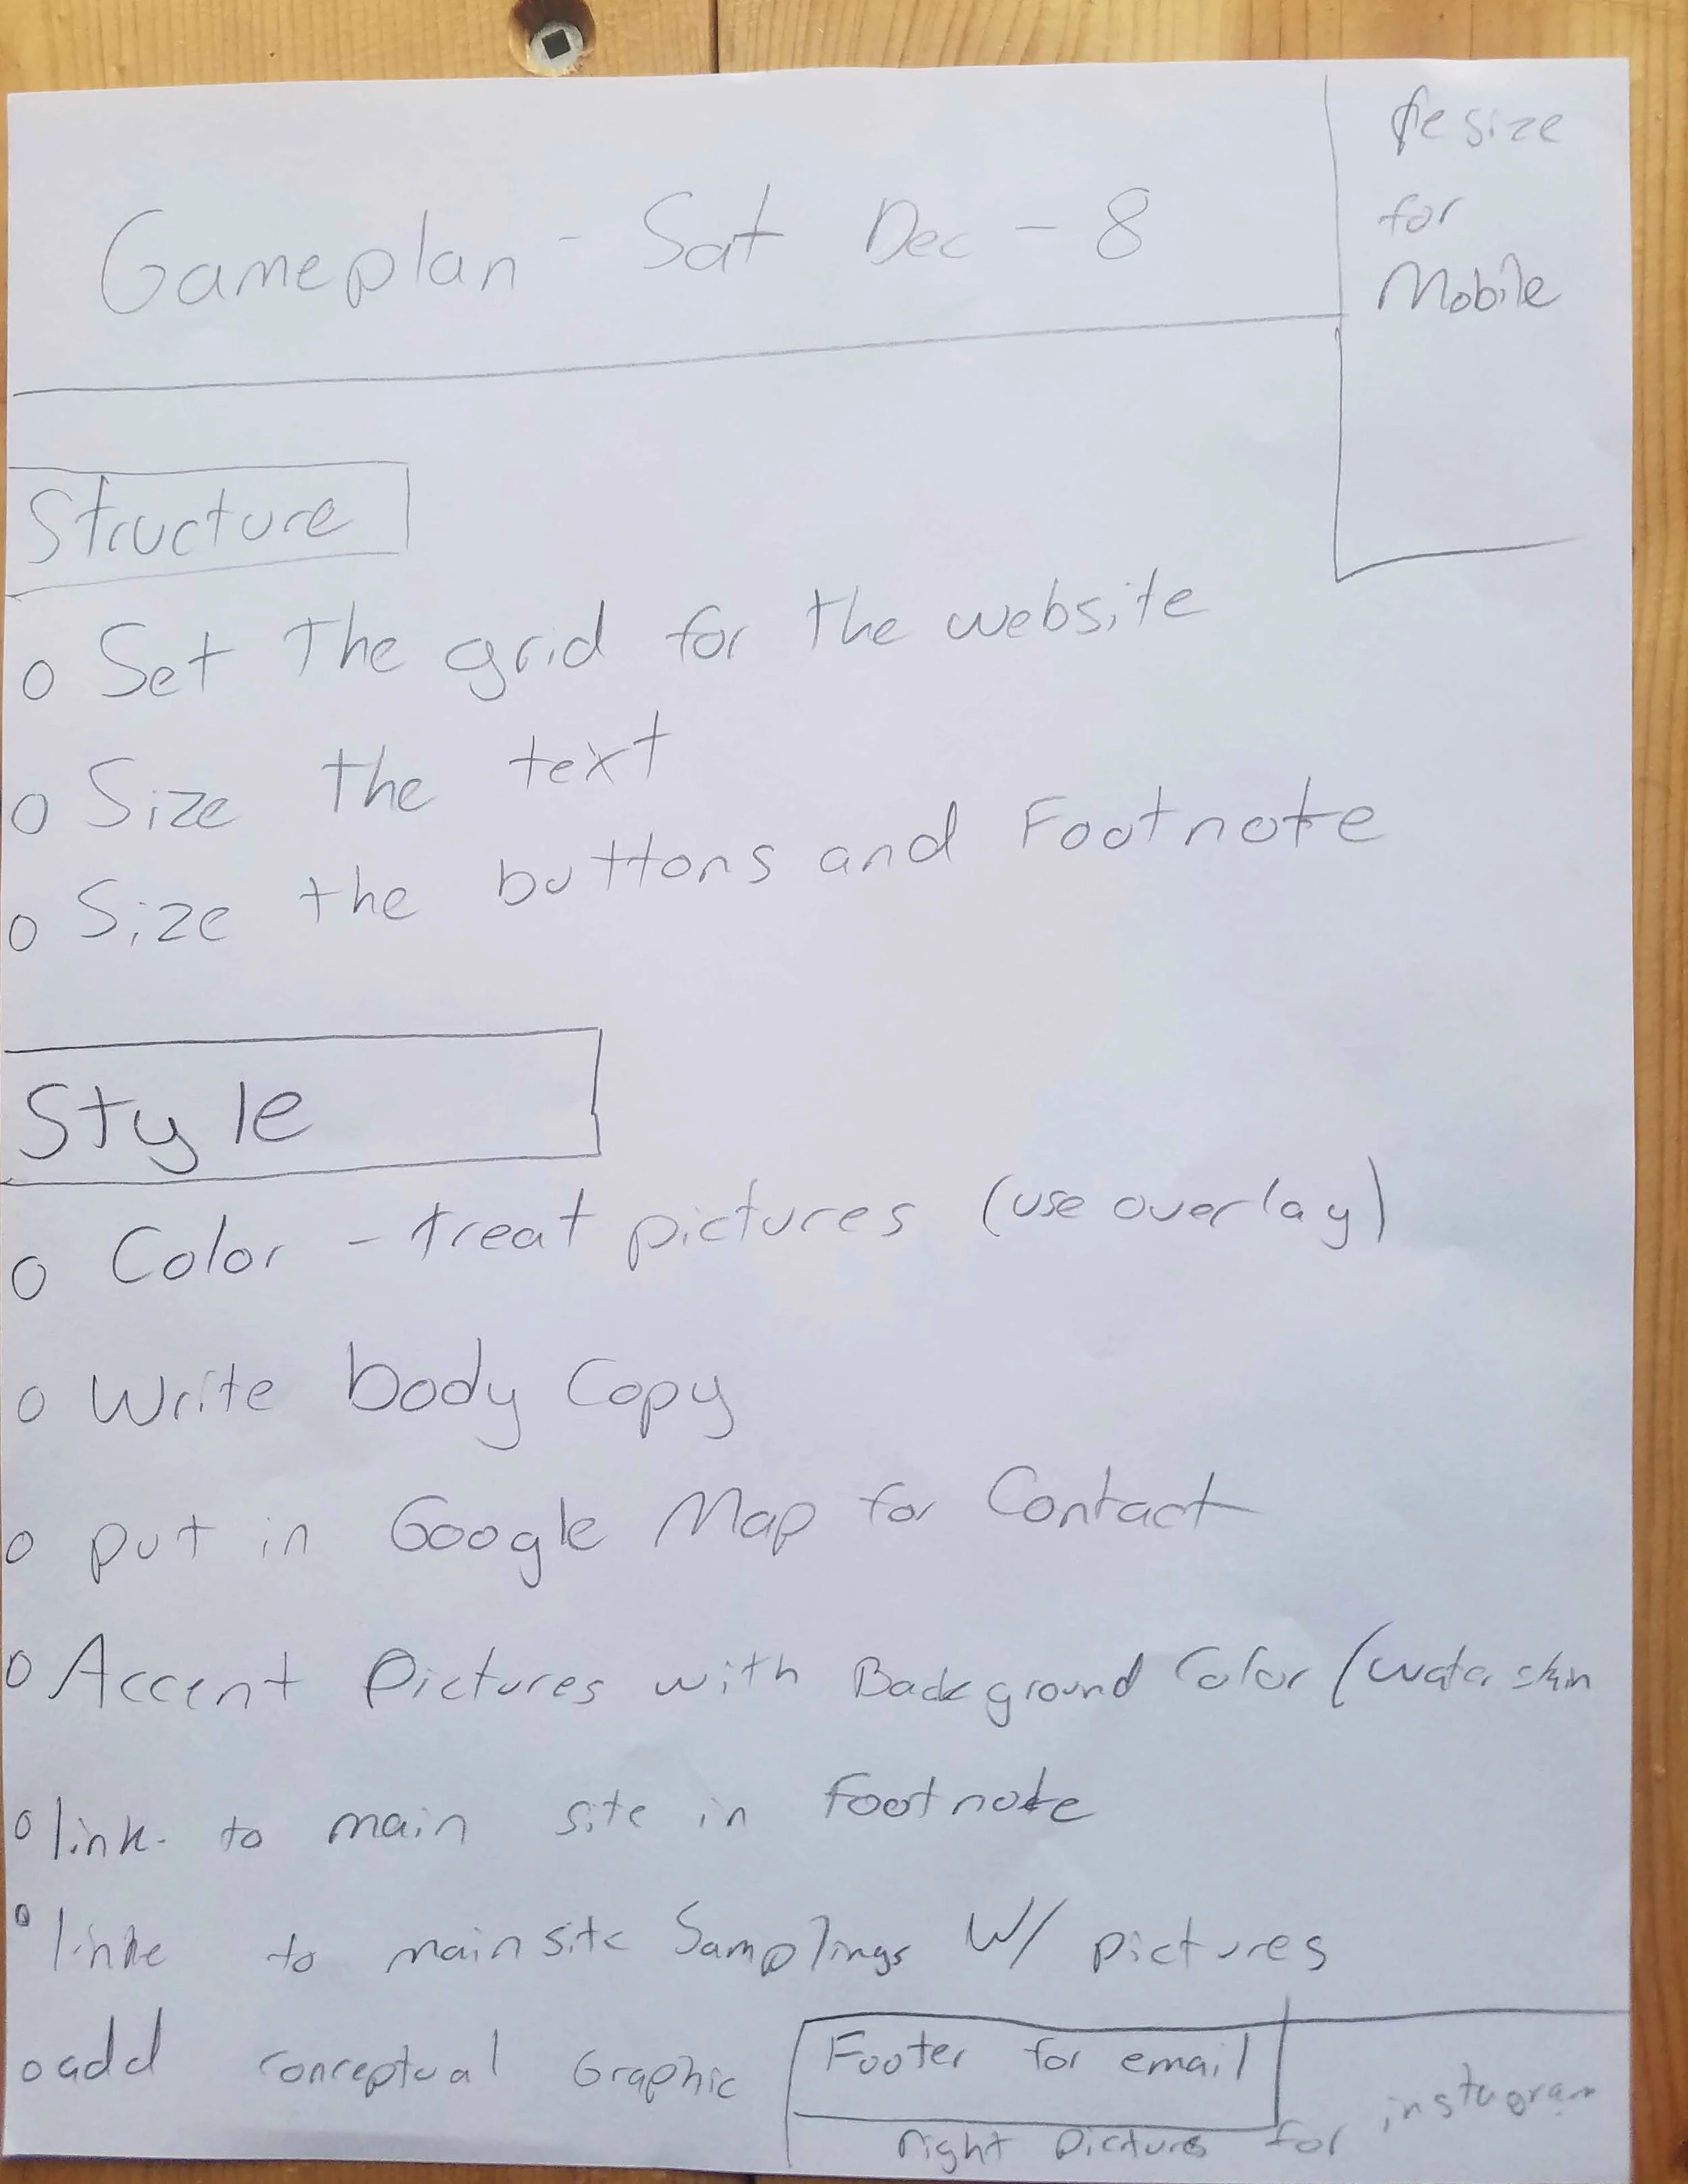 Gameplan - Sat Dec - 8
Resize
for
Mobile
Structure
o Set The grid for the website
o Size the text
o Size the buttons and Footnote
Style
o Color - treat pictures (use overlay)
o Write body Copy
o put in Google Map for Contact
o Accent Pictures with Background Color (water skin
o link to main site in Footnote
o linke to main site Samplings W/ pictures
o add conceptual Graphic
Footer for email
right pictures for instagram